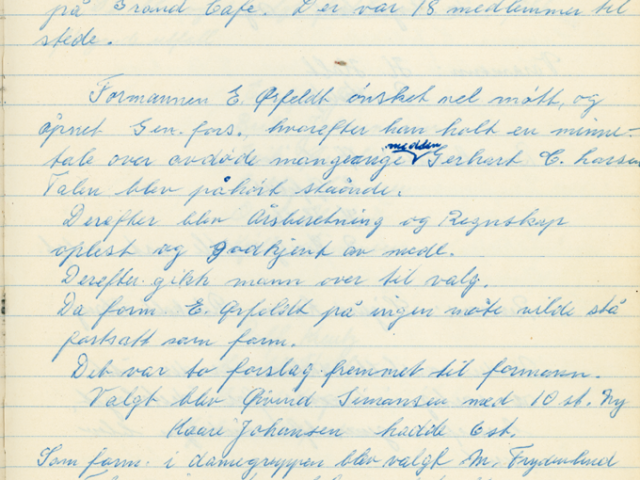 på Grand Cafe. Der var 18 medlemmer til
stede.
Formannen E. Ørfeldt ønsket vel møtt, og
åpnet Gen. fors. hvorefter han holt en minne-
tale over avdøde mangeårige medlem Gerhart C. Larsen
Talen blev påhørt stående.
Derefter blev Årsberetning og Regnskap
oplest og godkjent av medl.
Derefter gikk mann over til valg.
Da form. E. Ørfeldt på ingen møte vilde stå
fortsatt som form.
Det var to forslag fremmet til formann.
Valgt blev Øivind Simansen med 10 st.
Kaare Johansen hadde 6 st.
Som form. i damegruppen blev valgt M. Frydenlund